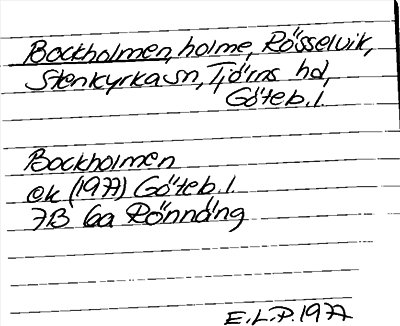 Bockholmen, holme, Rösselvik,
Stenkyrka sn, Tjörns hd,
Göteb. l.
Bockholmen
ek (1977) Göteb. l
7B 6a Rönnäng
E.L.P. 1977